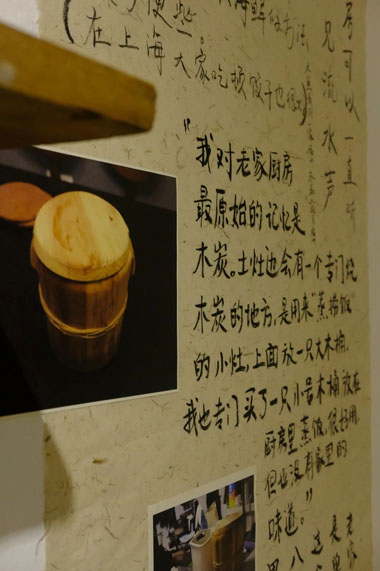 海鲜做方法
在上海大家吃顿饺子也
房可以一直听
见流水声
“我对老家厨房
最原始的记忆是
木炭。土灶边会有一个专门烧
木炭的地方，是用来“蒸饭”
的小灶，上面放一只大木桶。
我也专门买了一只小号木桶放在
厨房里蒸饭，很好用，
但也没有家里的
味道。”